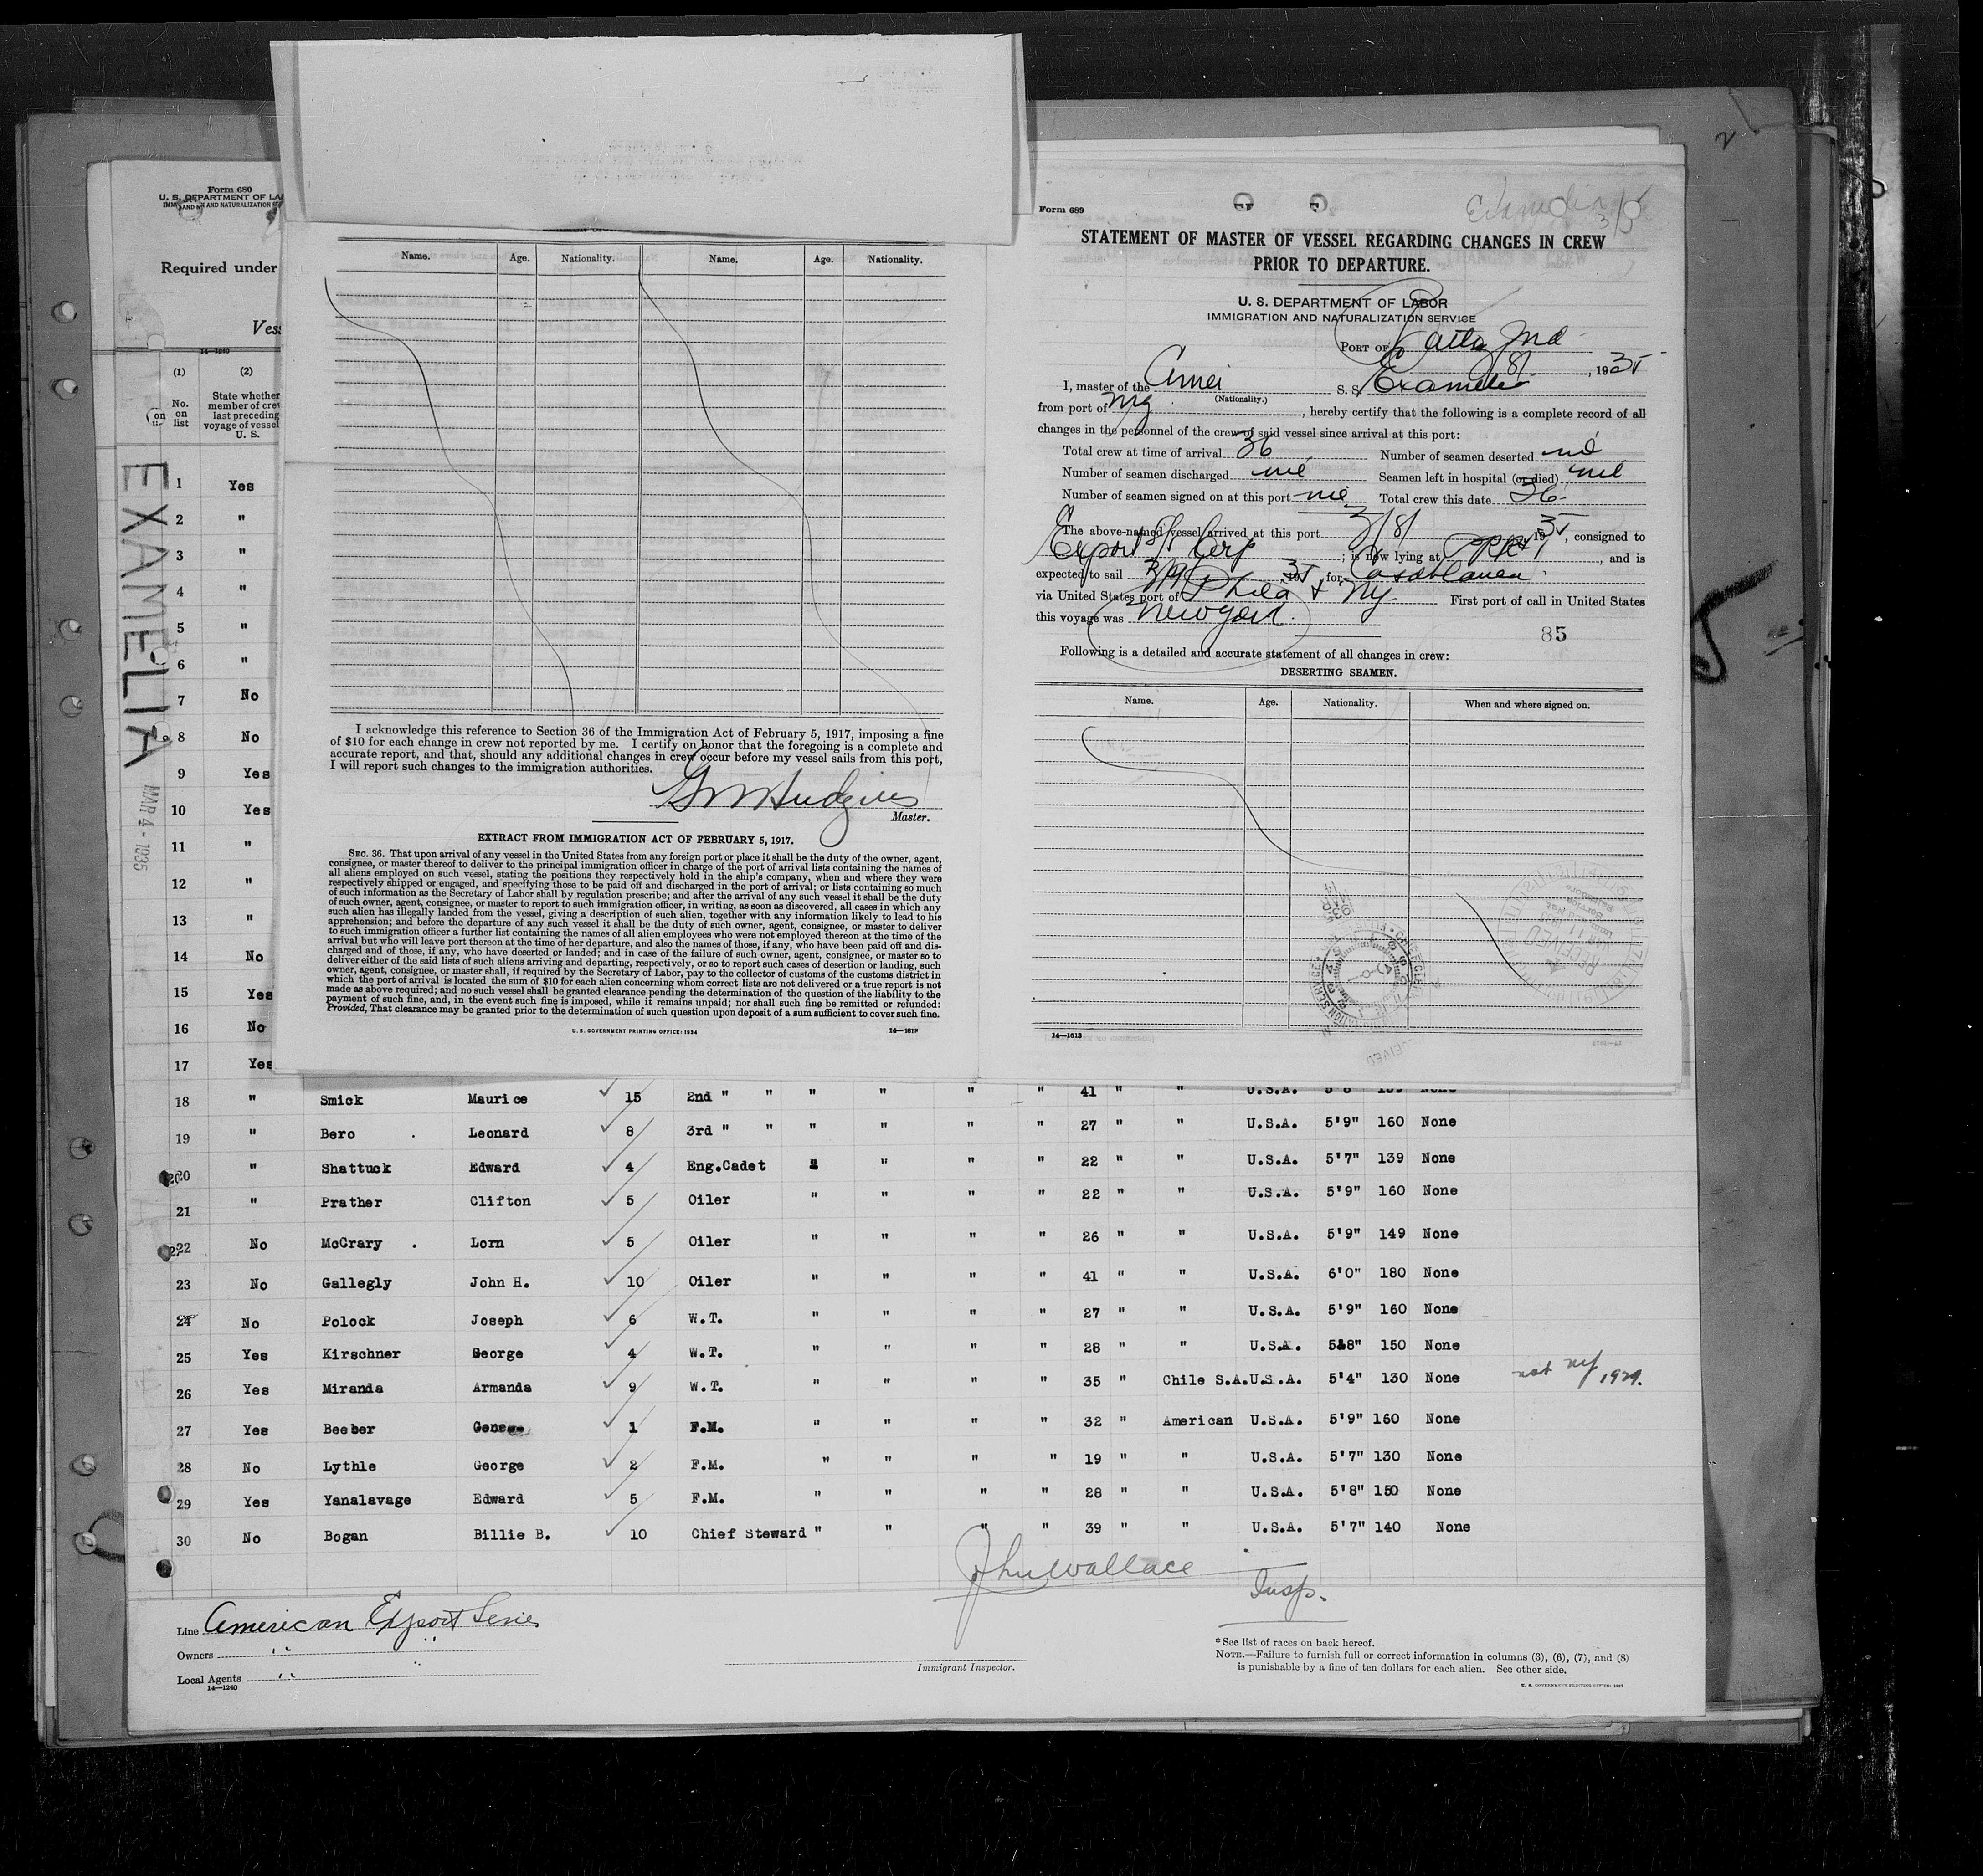 Form 680
U. S. DEPARTMENT OF LA
AND NATURALIZATION
Required under
Ves
14—1240
(1) (2)
No. on list
State whether member of crew last preceding voyage of vessel U. S.
EXAMELIA
MAR 4 - 1935
1 Yes
2 "
3 "
4 "
5 "
6 "
7 No
8 No
9 Yes
10 Yes
11 "
12 "
13 "
14 No
15 Yes
16 No
17 Yes
Name. Age. Nationality. Name. Age. Nationality.
I acknowledge this reference to Section 36 of the Immigration Act of February 5, 1917, imposing a fine
of $10 for each change in crew not reported by me. I certify on honor that the foregoing is a complete and
accurate report, and that, should any additional changes in crew occur before my vessel sails from this port,
I will report such changes to the immigration authorities.
Hudgins
Master.
EXTRACT FROM IMMIGRATION ACT OF FEBRUARY 5, 1917.
SEC. 36. That upon arrival of any vessel in the United States from any foreign port or place it shall be the duty of the owner, agent,
consignee, or master thereof to deliver to the principal immigration officer in charge of the port of arrival lists containing the names of
all aliens employed on such vessel, stating the positions they respectively hold in the ship's company, when and where they were
respectively shipped or engaged, and specifying those to be paid off and discharged in the port of arrival; or lists containing so much
of such information as the Secretary of Labor shall by regulation prescribe; and after the arrival of any such vessel it shall be the duty
of such owner, agent, consignee, or master to report to such immigration officer, in writing, as soon as discovered, all cases in which any
such alien has illegally landed from the vessel, giving a description of such alien, together with any information likely to lead to his
apprehension; and before the departure of any such vessel it shall be the duty of such owner, agent, consignee, or master to deliver
to such immigration officer a further list containing the names of all alien employees who were not employed thereon at the time of the
arrival but who will leave port thereon at the time of her departure, and also the names of those, if any, who have been paid off and dis-
charged and of those, if any, who have deserted or landed; and in case of the failure of such owner, agent, consignee, or master so to
deliver either of the said lists of such aliens arriving and departing, respectively, or so to report such cases of desertion or landing, such
owner, agent, consignee, or master shall, if required by the Secretary of Labor, pay to the collector of customs of the customs district in
which the port of arrival is located the sum of $10 for each alien concerning whom correct lists are not delivered or a true report is not
made as above required; and no such vessel shall be granted clearance pending the determination of the question of the liability to the
payment of such fine, and, in the event such fine is imposed, while it remains unpaid; nor shall such fine be remitted or refunded:
Provided, That clearance may be granted prior to the determination of such question upon deposit of a sum sufficient to cover such fine.
U. S. GOVERNMENT PRINTING OFFICE: 1934 14—1617
Form 689
Examelia 3/5
STATEMENT OF MASTER OF VESSEL REGARDING CHANGES IN CREW
PRIOR TO DEPARTURE.
U. S. DEPARTMENT OF LABOR
IMMIGRATION AND NATURALIZATION SERVICE
PORT OF Balto Md
3/8/, 1935
I, master of the Amer S. S. Examelia
(Nationality.)
from port of NY, hereby certify that the following is a complete record of all
changes in the personnel of the crew of said vessel since arrival at this port:
Total crew at time of arrival 36 Number of seamen deserted nil
Number of seamen discharged nil Seamen left in hospital (or died) nil
Number of seamen signed on at this port nil Total crew this date 36
The above-named vessel arrived at this port 3/8/ 1935, consigned to
Export S/S Corp; is now lying at PRR, and is
expected to sail 3/9/ 1935 for Casablanca
via United States port of Phila & NY First port of call in United States
this voyage was New York.
85
Following is a detailed and accurate statement of all changes in crew:
DESERTING SEAMEN.
Name. Age. Nationality. When and where signed on.
RECEIVED
14—1613
18 " Smick Maurice 15 2nd " " " " " " 41 " " U.S.A. 5'8" 159 None
19 " Bero . Leonard 8 3rd " " " " " " 27 " " U.S.A. 5'9" 160 None
20 " Shattuck Edward 4 Eng.Cadet " " " " 22 " " U.S.A. 5'7" 139 None
21 " Prather Clifton 5 Oiler " " " " 22 " " U.S.A. 5'9" 160 None
22 No McCrary . Lorn 5 Oiler " " " " 26 " " U.S.A. 5'9" 149 None
23 No Gallegly John H. 10 Oiler " " " " 41 " " U.S.A. 6'0" 180 None
24 No Polock Joseph 6 W.T. " " " " 27 " " U.S.A. 5'9" 160 None
25 Yes Kirschner George 4 W.T. " " " " 28 " " U.S.A. 5'8" 150 None
26 Yes Miranda Armanda 9 W.T. " " " " 35 " Chile S.A. U.S.A. 5'4" 130 None nat NY 1929.
27 Yes Beeber Gene 1 F.M. " " " " 32 " American U.S.A. 5'9" 160 None
28 No Lythle George 2 F.M. " " " " 19 " " U.S.A. 5'7" 130 None
29 Yes Yanalavage Edward 5 F.M. " " " " 28 " " U.S.A. 5'8" 150 None
30 No Bogan Billie B. 10 Chief Steward " " " " 39 " " U.S.A. 5'7" 140 None
John Wallace
Insp.
Line American Export Lines
Owners " "
Local Agents " "
14—1240
Immigrant Inspector.
* See list of races on back hereof.
NOTE.—Failure to furnish full or correct information in columns (3), (6), (7), and (8)
is punishable by a fine of ten dollars for each alien. See other side.